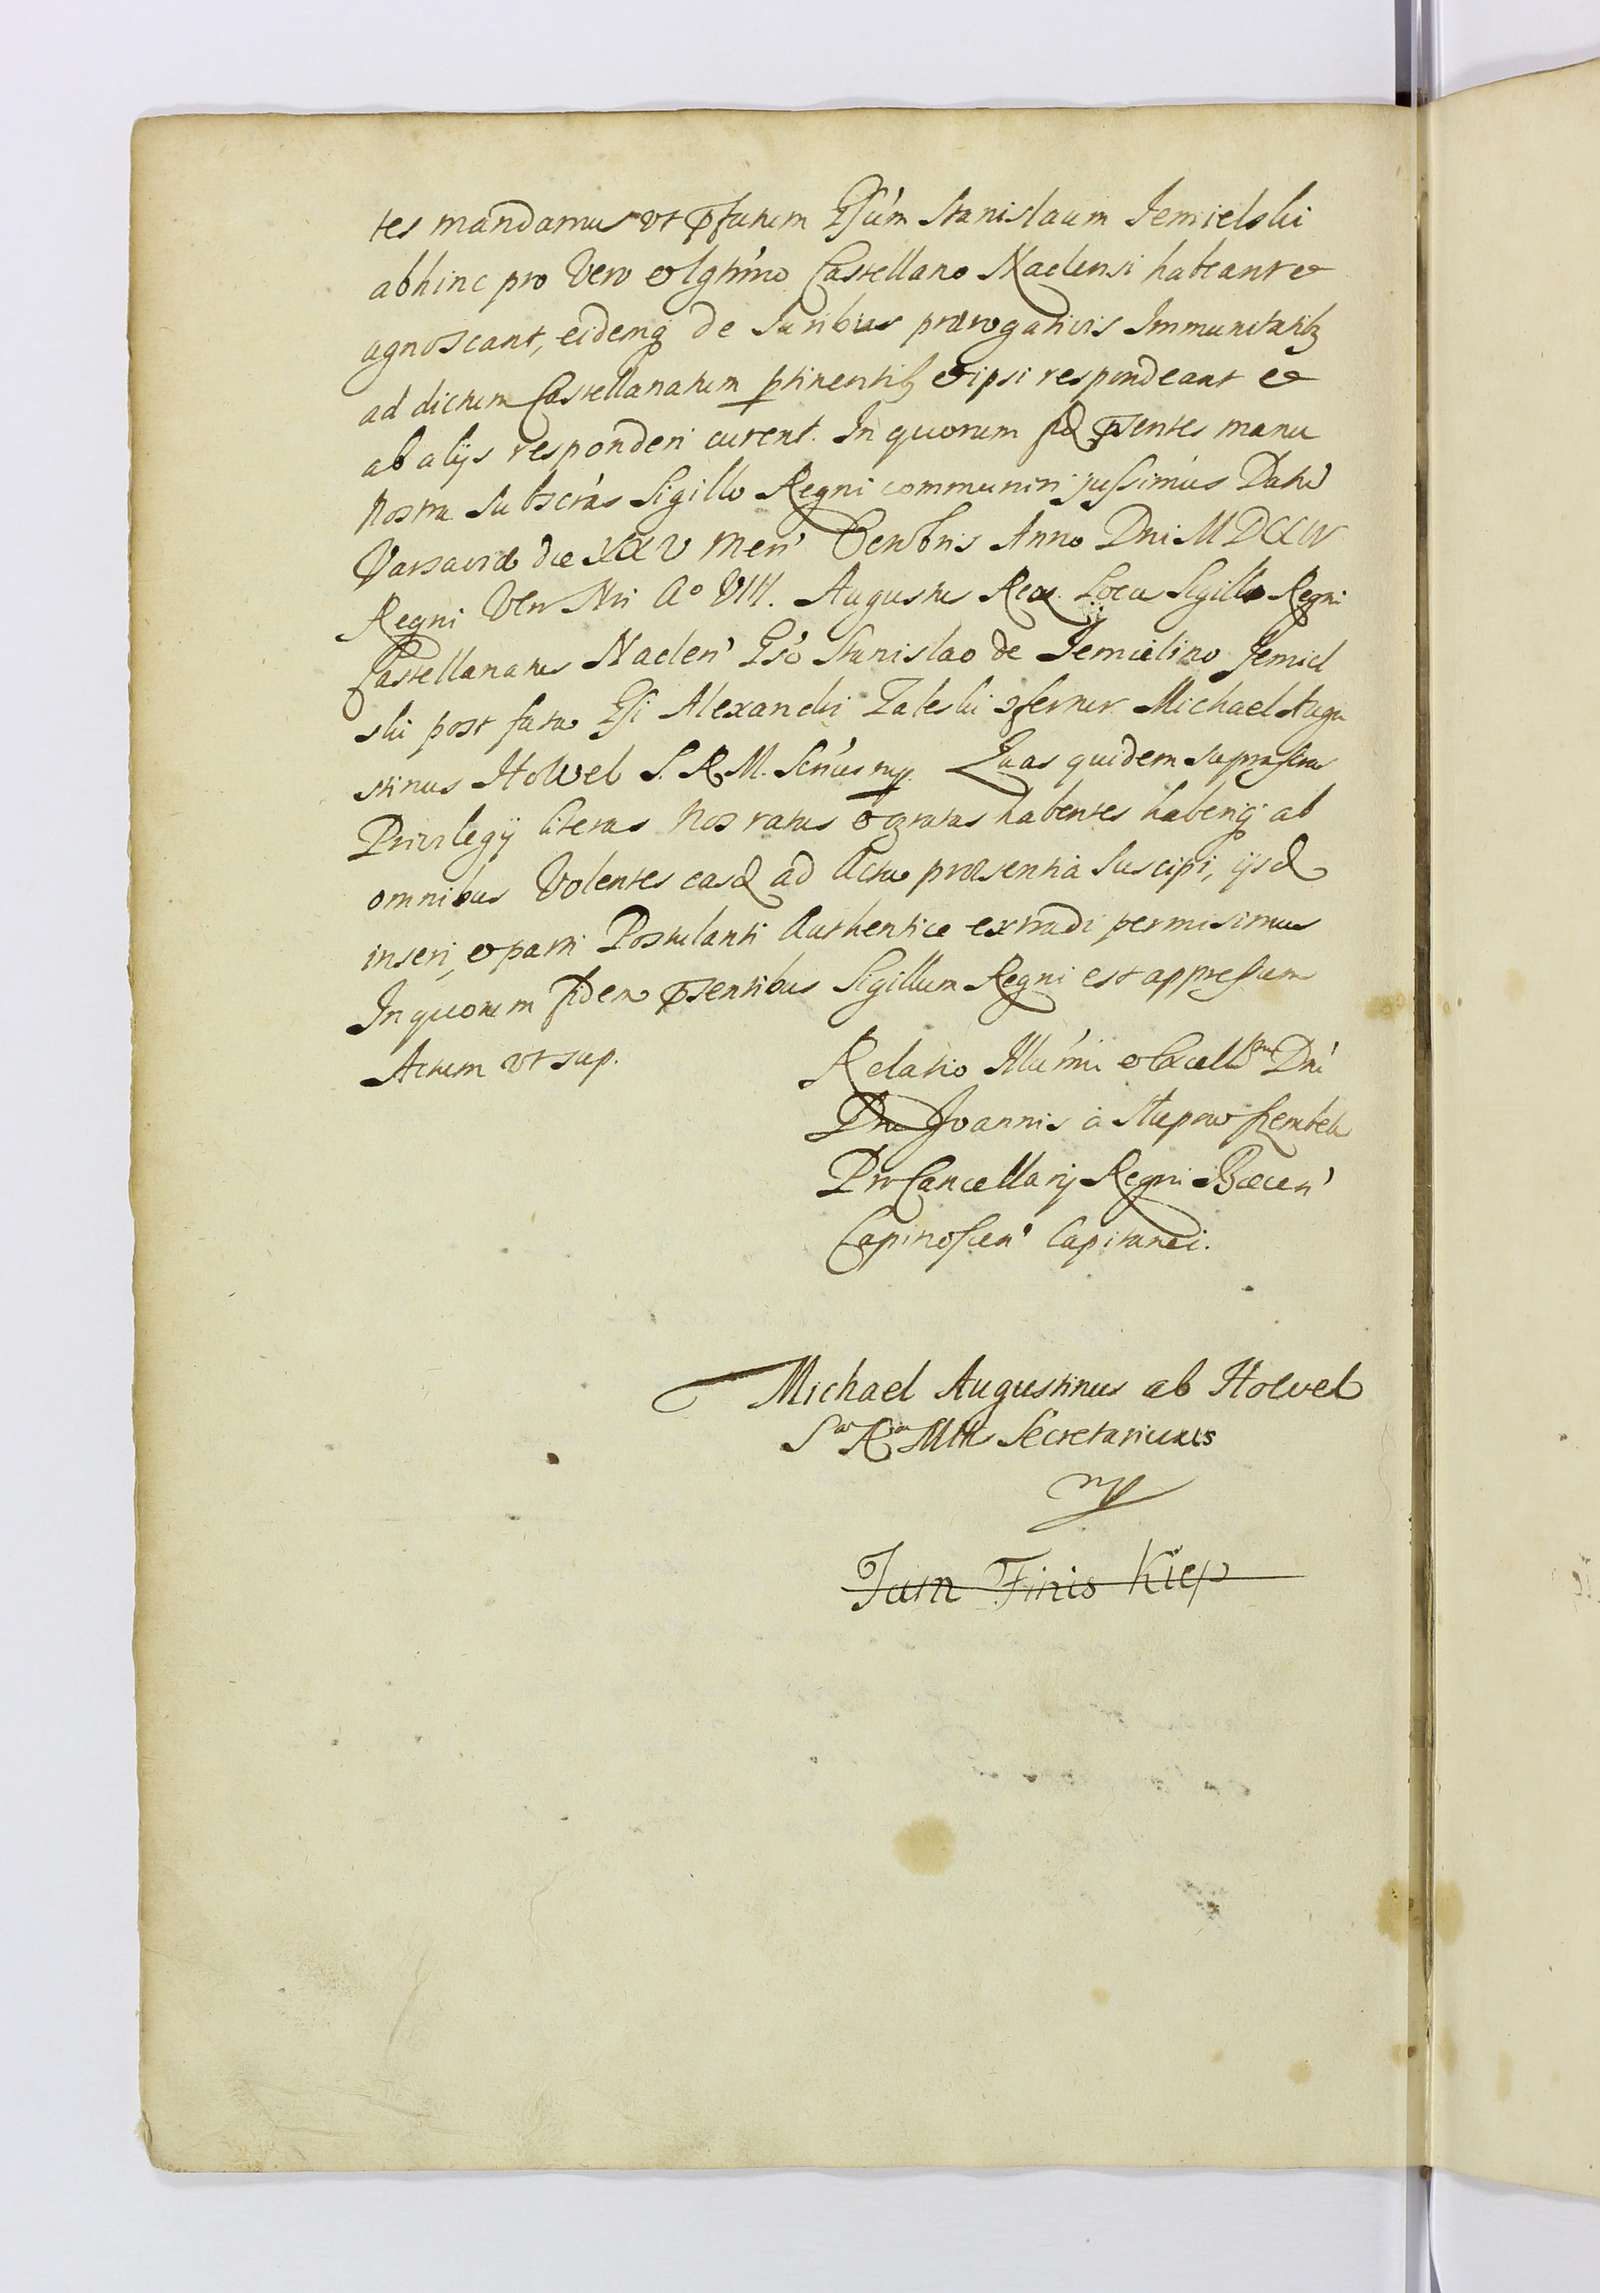 tes mandamus vt pſatum Gſum Stanislaum Jemielski
abhinc pro Vero et lgttimo Castellano Naclensi habeant et
agnoscant, eidemq de Juribus prærogativis Immunitatibz
ad dictum Castellanatum ptinentibz et ipsi respondeant et
ab alijs responderi curent. In quorum fid psentes manu
Nostra Subscras Sigillo Regni communiri juſsimus Datu
Varsaviæ die XXV Men Anno Dni MDCCIV
Regni Vero Nri Ao VIII. Augustus Rex. Locus Sigilli Regni
Castellanatus Naclen Gso Stanislao de Jemielino Jemiel
ski post fata Gſi Alexandri Zaleski 9fertur Michael Augu
stinus Holvel S. R. M. Scrius mp. Quas quidem
Privilegij literas Nos ratas et gratas habentes haberiq ab
omnibus Volentes easq ad Acta præsentia Suscipi, ijsq
inseri, et parti Postulanti Authentice extradi permisimus
In quorum fidem psentibus Sigillum Regni est appreſsum
Actum vt sup.
Relatio Illumi et Excellmi Dni
Dni Joannis à Słupow Szembek
ProCancellarij Regni
Capitanei.
Michael Augustinus ab Holvel
Sæ Ræ Mttis Secretarius
mp
Jam Finis Kiep